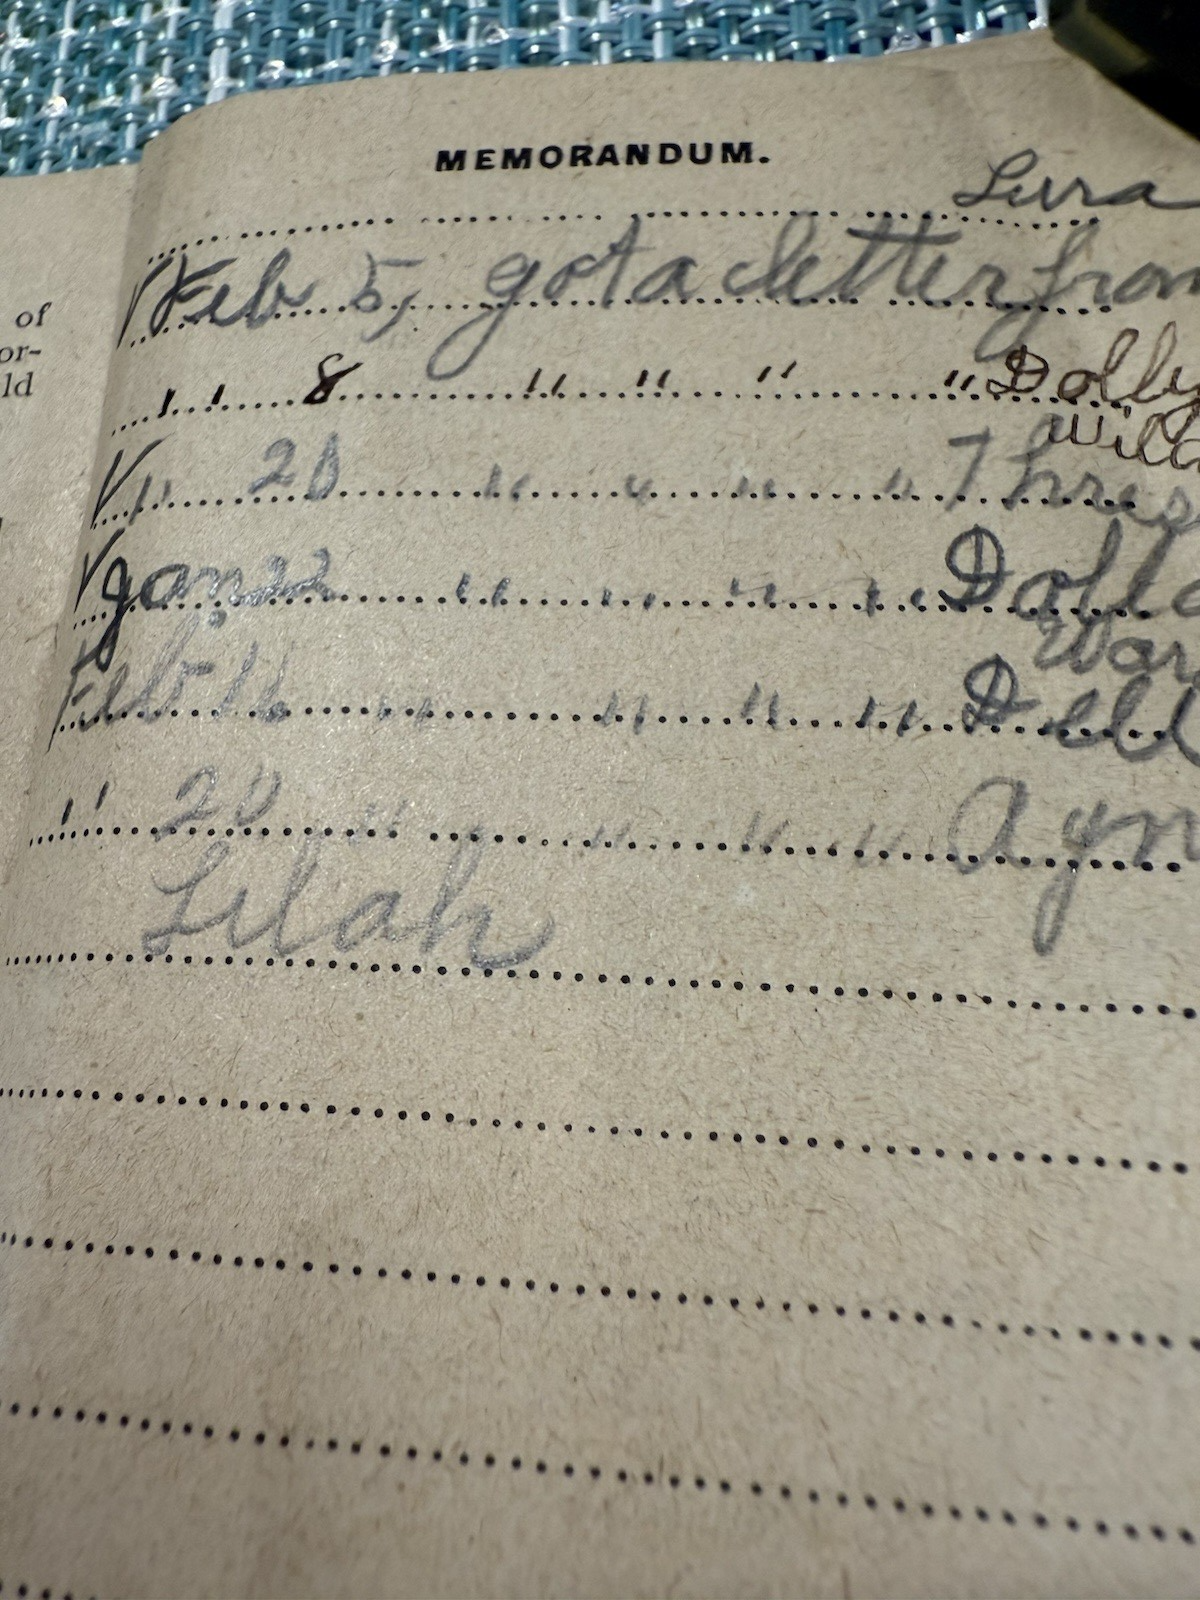 of
or-
ld
MEMORANDUM.
Lura
√ Feb 5, got a letter from
" 8 " " " " Dolly
Wild
√ " 20 " " " " Thres
√ Jan 22 " " " " Dolla
War
Feb 16 " " " " Dell
" 20 " " " " Agn
Lilah